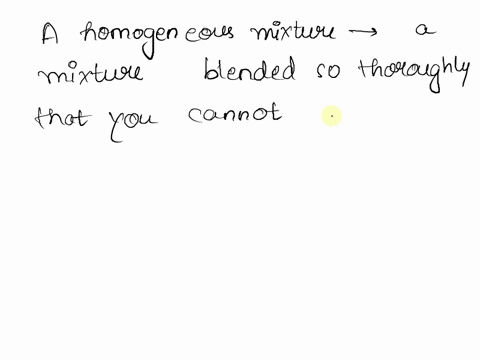 A homogeneous mixture → a
mixture blended so thoroughly
that you cannot